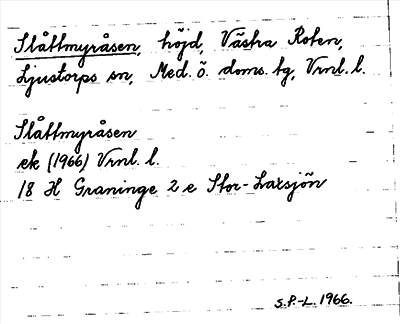 Slåttmyråsen, höjd, Västra Roten,
Ljustorps sn, Med. ö. doms. tg, Vrnl. l.
Slåttmyråsen
ek (1966) Vrnl. l.
18 H Graninge 2 e Stor-Laxsjön
S.P.-L. 1966.